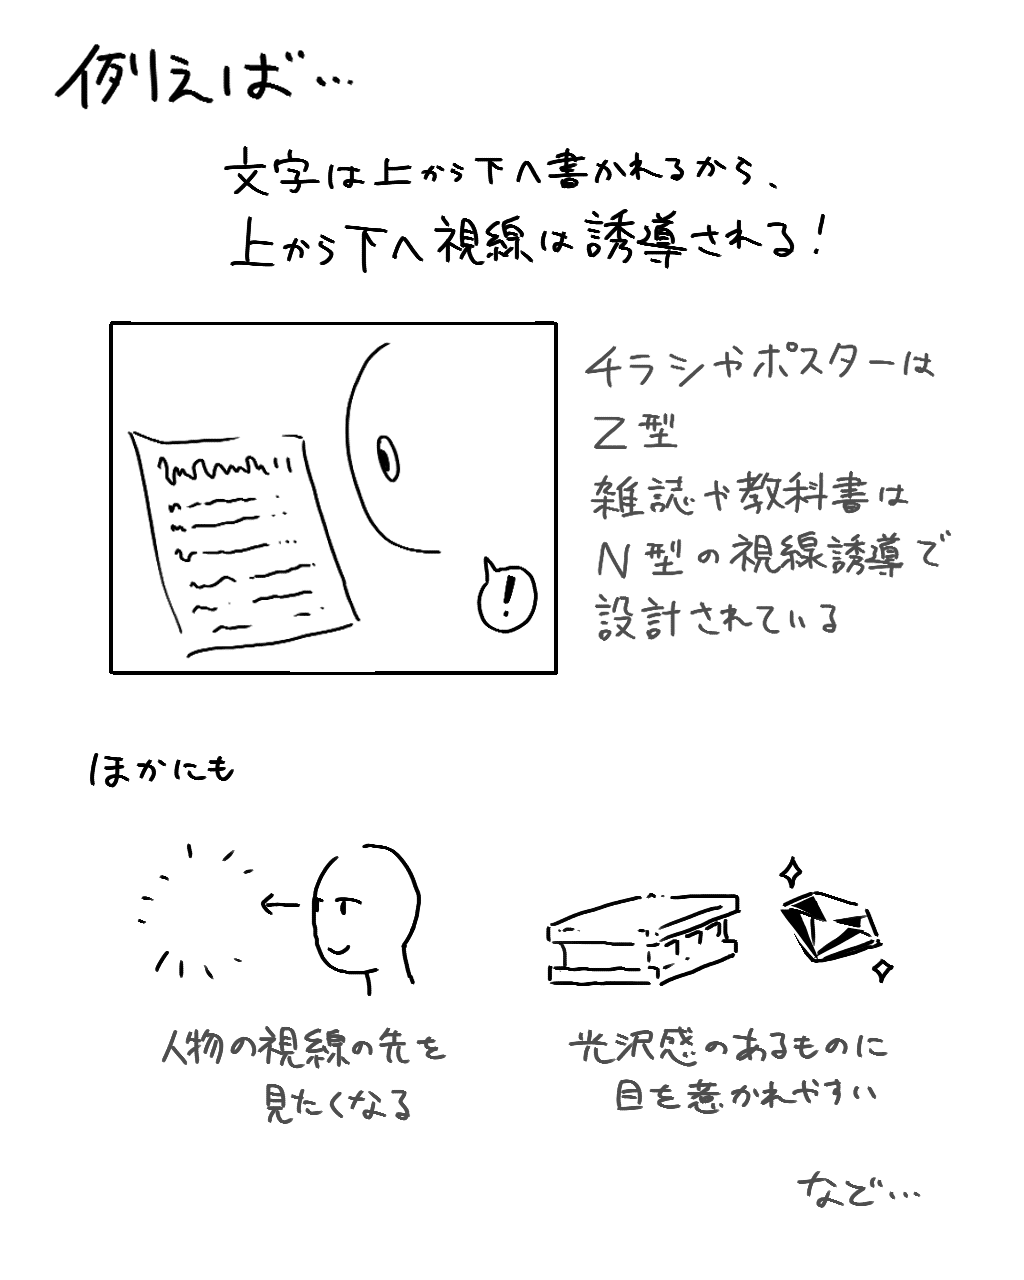 例えば…
文字は上から下へ書かれるから、
上から下へ視線は誘導される!
チラシやポスターは
Z型
雑誌や教科書は
N型の視線誘導で
設計されている
!
ほかにも
人物の視線の先を
見たくなる
光沢感のあるものに
目を惹かれやすい
など…